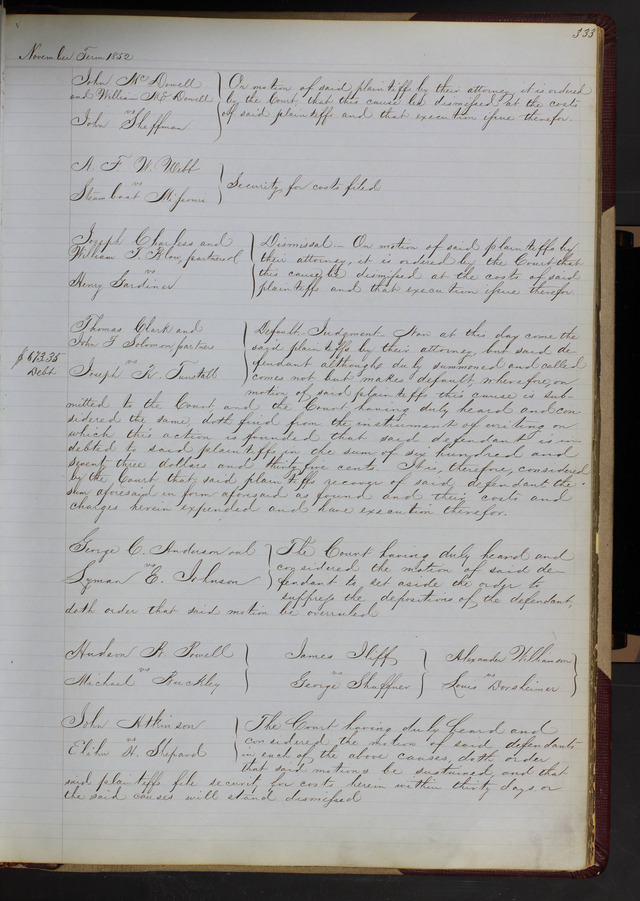 333
November Term 1852
John McDowell
and William McDowell
vs
John Sheffman
On motion of said plaintiffs by their attorney, it is ordered
by the Court, that this cause be dismissed at the costs
of said plaintiffs and that execution issue therefor.
A. F. W. Webb
vs
Steam boat Missouri
Security for costs filed
Joseph Charless and
William T. Blow, partners
vs
Henry Gardiner
Dismissal – On motion of said plaintiffs by
their attorney, it is ordered by the Court that
this cause be dismissed at the costs of said
plaintiffs and that execution issue therefor.
Thomas Clark and
John T Solomon, partners
vs
Joseph K. Tunstall
$673.35
Debt
Default Judgment – Now at this day come the
said plaintiffs by their attorney, but said de-
fendant although duly summoned and called
comes not but makes default, wherefore, on
motion of said plaintiffs this cause is sub-
mitted to the Court, and the Court having duly heard and con
sidered the same, doth find from the instrument of writing on
which this action is founded that said defendant is in-
debted to said plaintiffs in the sum of six hundred and
seventy three dollars and thirty five cents. It is, therefore, considered
by the Court that said plaintiffs recover of said defendant the
sum aforesaid in form aforesaid as found and their costs and
charges herein expended and have execution therefor.
George C. Anderson
vs
Lyman E. Johnson
The Court having duly heard and
considered the motion of said de-
fendant to set aside the order to
suppress the depositions of the defendant,
doth order that said motion be overruled
Hudson R Powell
vs
Michael Buckley
James Iliff
vs
George Shaffner
Alexander Williamson
vs
Louis Dorsheimer
John Atkinson
vs
Elihu H. Shepard
The Court having duly heard and
considered the motion of said defendants
in each of the above causes, doth order
that said motions be sustained, and that
said plaintiffs file security for costs herein within thirty days or
the said causes will stand dismissed